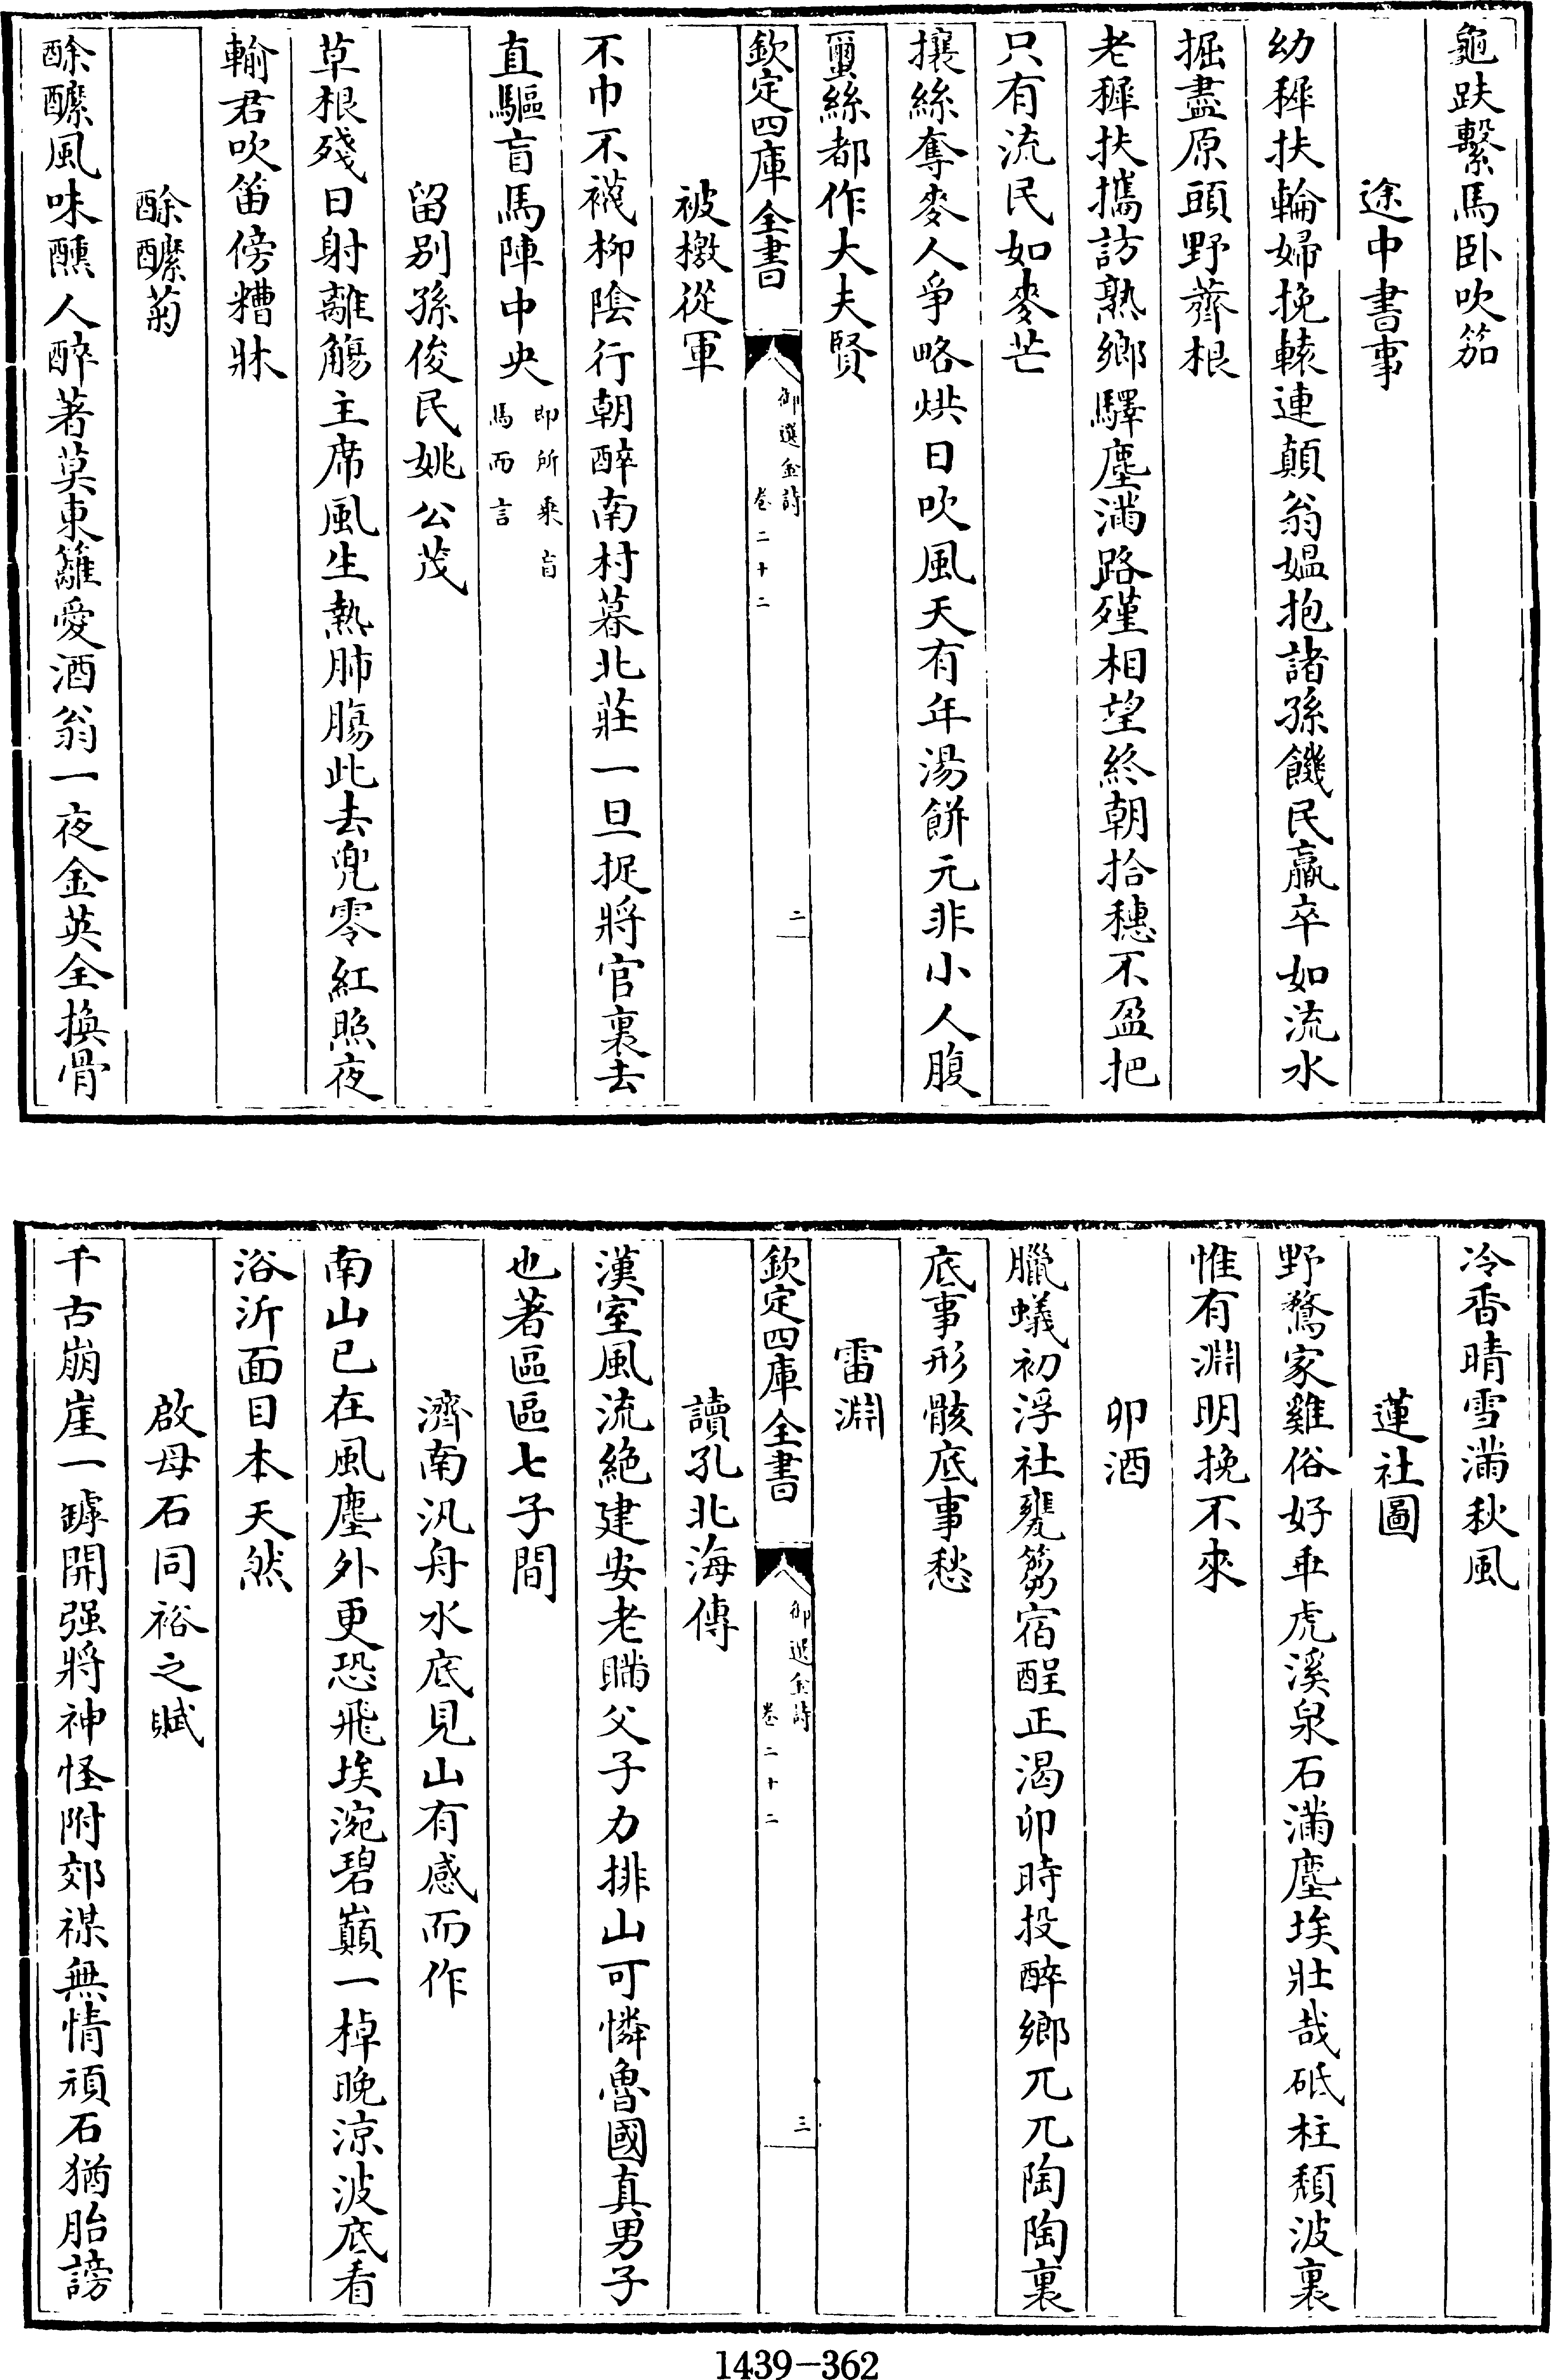 龜趺繫馬卧吹笳
途中書事
幼穉扶輪婦挽轅連顛翁媼抱諸孫饑民羸卒如流水
掘盡原頭野薺根
老穉扶攜訪熟鄉驛塵滿路殣相望終朝拾穗不盈把
只有流民如麥芒
攘絲奪麥人爭略烘日吹風天有年湯餅元非小人腹
蠒絲都作大夫賢
欽定四庫全書
御選金詩
卷二十二
二
被檄從軍
不巾不襪柳陰行朝醉南村暮北莊一旦捉將官裏去
直驅盲馬陣中央即所乘盲馬而言
留别孫俊民姚公茂
草根殘日射離觴主席風生熱肺腸此去兜零紅照夜
輸君吹笛傍糟牀
酴醾菊
酴醾風味醺人醉著莫東籬愛酒翁一夜金英全換骨
冷香晴雪滿秋風
蓮社圖
野鶩家雞俗好乖虎溪泉石滿塵埃壯哉砥柱頹波裏
惟有淵明挽不來
卯酒
臘蟻初浮社甕篘宿酲正渴卯時投醉鄉兀兀陶陶裏
底事形骸底事愁
雷淵
欽定四庫全書
御選金詩
卷二十二
三
讀孔北海傳
漢室風流絶建安老瞞父子力排山可憐魯國真男子
也著區區七子間
濟南汎舟水底見山有感而作
南山已在風塵外更恐飛埃涴碧巔一棹晚涼波底看
浴沂面目本天然
啟母石同裕之賦
千古崩崖一罅開强將神怪附郊禖無情頑石猶胎謗
1439-362